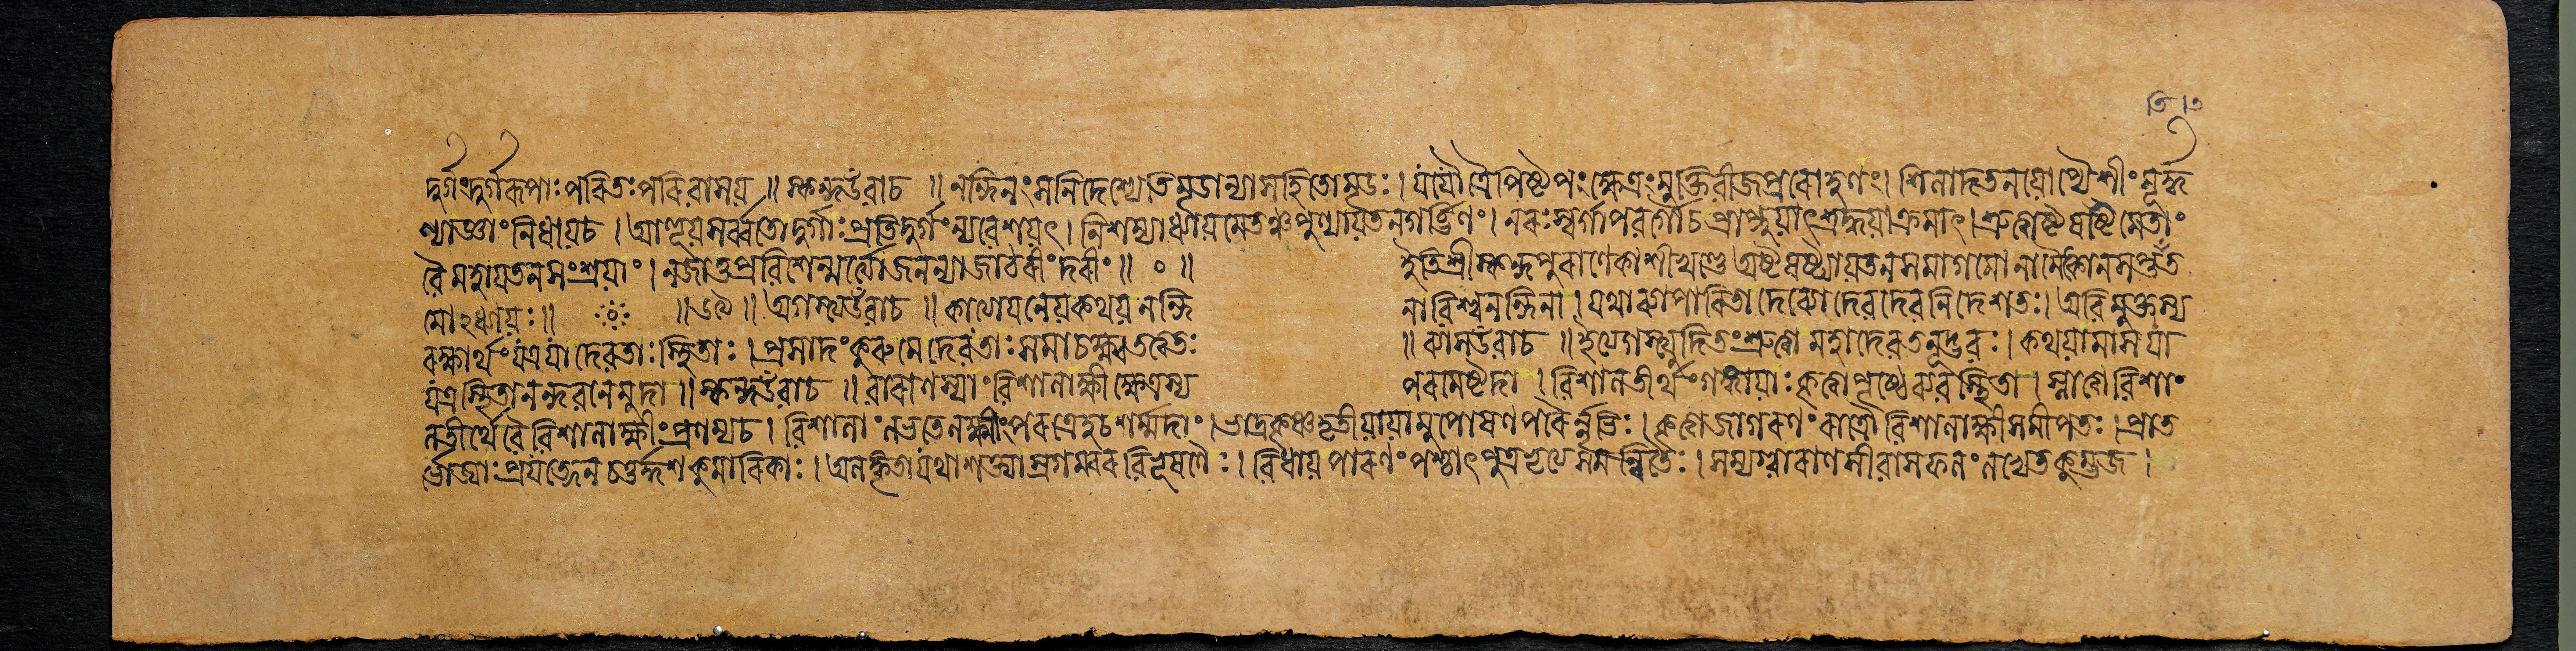 দুর্গংদুর্গরূপাঃপরিতঃপরিবাসয় ॥ স্কন্দউবাচ ॥ নন্দিনংসনিদেশ্যেতিমৃডান্যাসহিতোমৃডঃ। যযৌত্রৈপিষ্টপংক্ষেত্রংমুক্তিবীজপ্ররোহণং। শিলাদতনয়োপ্যৈশীংমূর্দ্ধ
ণ্যাজ্ঞাংনিধায়চ । আহূয়সর্ব্বতোদুর্গাঃপ্রতিদুর্গংন্যবেশয়ৎ। নিশম্যাধ্যায়মেতঞ্চপুণ্যায়তনগর্ভিণং। নরঃস্বর্গাপবর্গৌচপ্রাপ্নুয়াৎশ্রদ্ধয়াক্রমাৎ। শ্রুত্বাষ্টষষ্টিমেতাং
বৈমহায়তনসংশ্রয়াং। নজাতুপ্রবিশেন্মর্ত্যোজনন্যাজাঠরীংদরীং ॥ ০ ॥ ইতিশ্রীস্কন্দপুরাণেকাশীখণ্ডেঅষ্টষষ্ট্যায়তনসমাগমোনামৈকোনসপ্তত
মোঽধ্যায়ঃ॥ ॥৬৯॥ অগস্ত্যউবাচ ॥ কাত্যেয়নেয়কথয়নন্দি নাবিশ্বনন্দিনা । যথাব্যাপারিতাদেব্যোদেবদেবনিদেশতঃ। অবিমুক্তস্য
রক্ষার্থংযত্রযাদেবতাঃস্থিতাঃ। প্রসাদংকুরুমেদেবতাঃসমাচক্ষ্বতত্বতঃ ॥ ব্যাসউবাচ ॥ ইত্যেগস্ত্যুদিতংশ্রুত্বামহাদেবতনূদ্ভবঃ। কথয়ামাসযা
যত্রস্থিতানন্দবনেমুদা ॥ স্কন্দউবাচ ॥ বারাণস্যাংবিশালাক্ষীক্ষেত্রস্য পরমেষ্টদা । বিশালতীর্থংগঙ্গায়াঃকৃত্বাপৃষ্ঠেব্যবস্থিতা । স্নাত্বাবিশা
লতীর্থেবৈবিশালাক্ষীংপ্রণম্যচ । বিশালাংলভতেলক্ষ্মীংপরত্রেহচশর্ম্মদাং। ভাদ্রকৃষ্ণতৃতীয়ায়ামুপোষণপরৈর্নৃভিঃ। কৃত্বাজাগরণংরাত্রৌবিশালাক্ষীসমীপতঃ। প্রাত
র্ভোজ্যাঃপ্রযত্নেনচতুর্দ্দশকুমারিকাঃ। অলঙ্কৃতাযথাশক্ত্যাস্রগম্বরবিভূষণৈঃ। বিধায়পারণংপশ্চাৎপুত্রভৃত্যসমন্বিতৈঃ। সম্যগ্বারাণসীবাসফলংলভ্যেতকুম্ভজ।